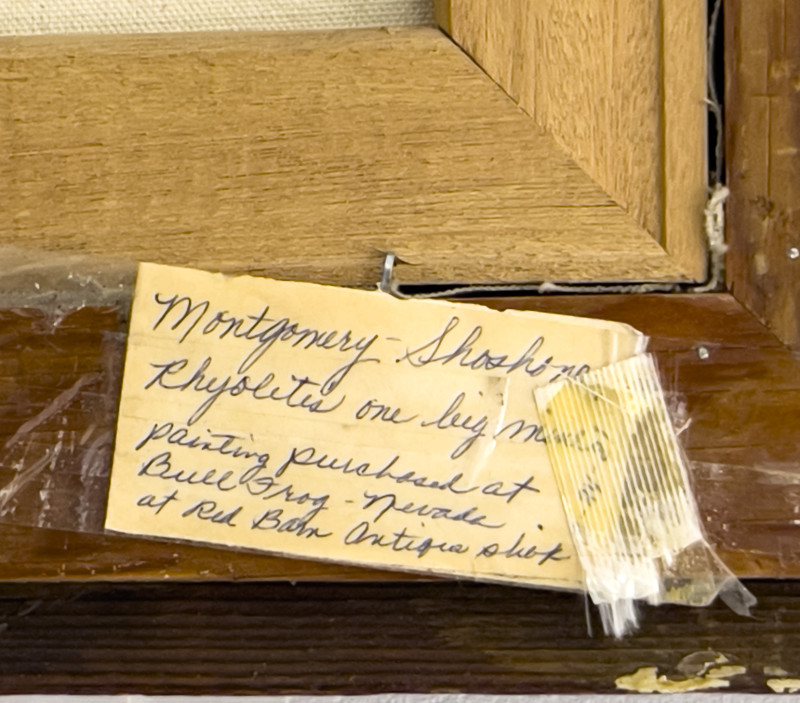 Montgomery-Shoshone
Rhyolites one big
painting purchased at
Bull Frog - Nevada
at Red Barn Antique shop